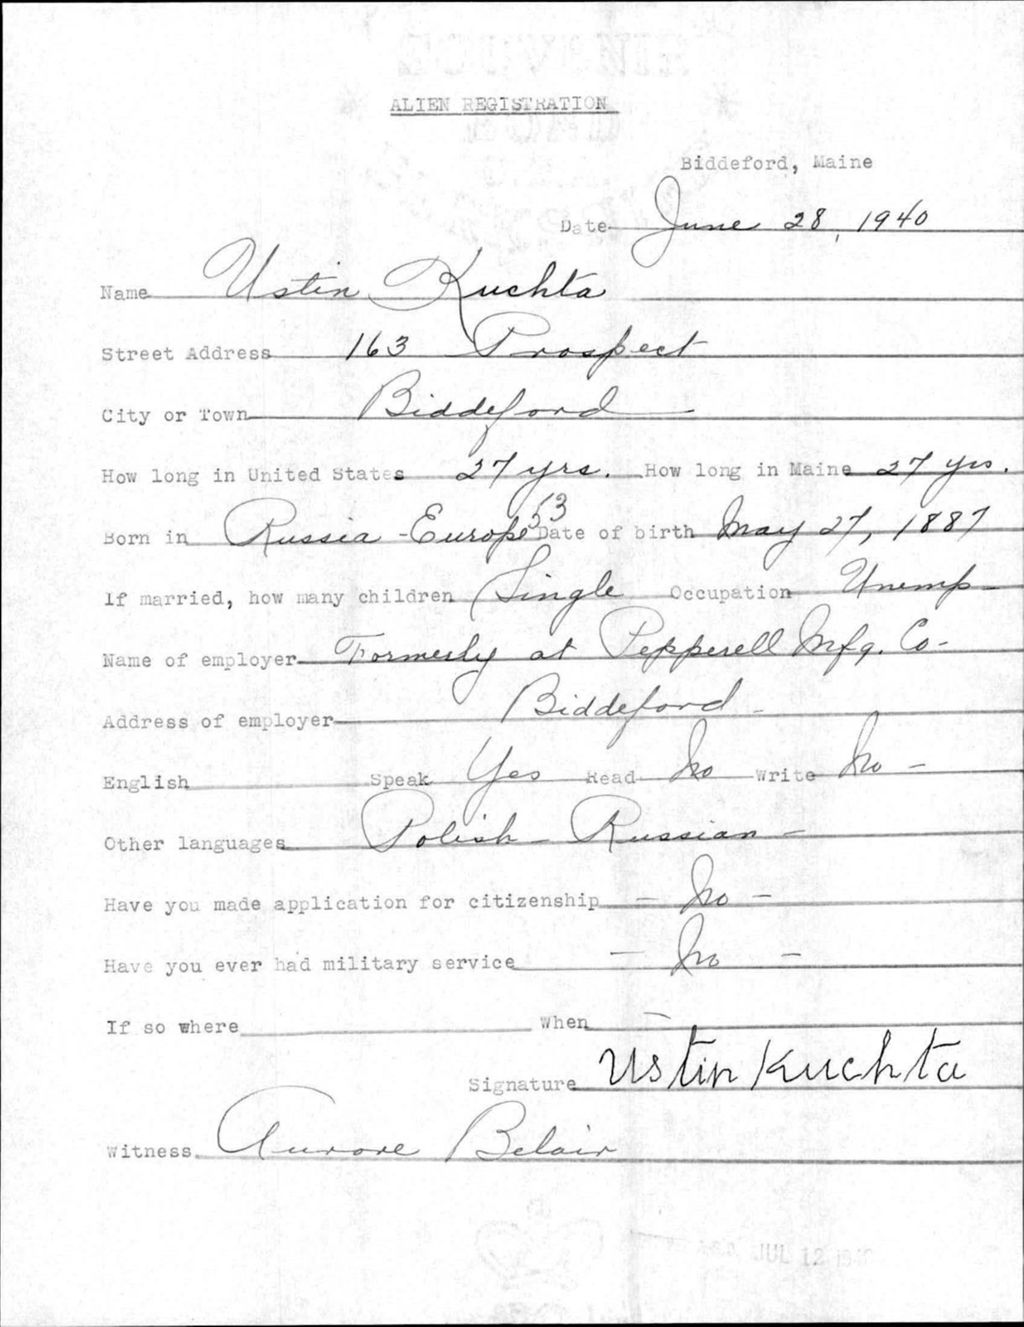 ALIEN REGISTRATION
Biddeford, Maine
Date June 28, 1940
Name Ustin Kuchta
Street Address 163 Prospect
City or Town Biddeford
How long in United States 27 yrs. How long in Maine 27 yrs.
Born in Russia - Europe 53 Date of birth May 27, 1887
If married, how many children Single Occupation Unemp-
Name of employer Formerly at Pepperell Mfg. Co-
Address of employer Biddeford-
English Speak Yes Read No Write No -
Other languages Polish - Russian -
Have you made application for citizenship - No -
Have you ever had military service - No -
If so where When -
Signature Ustin Kuchta
Witness Aurore Belair
JUL 12